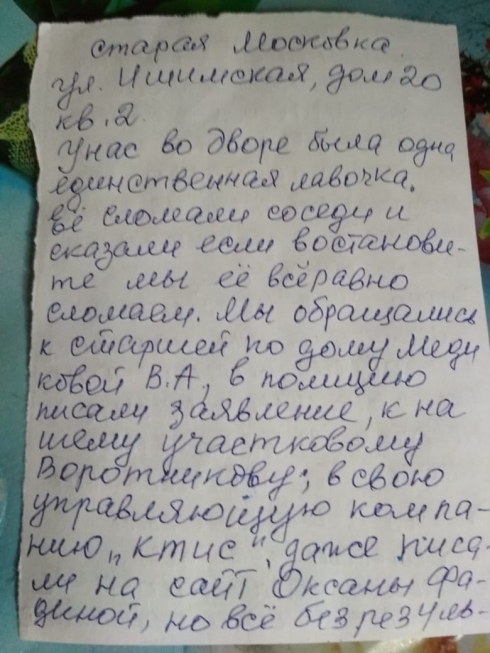 старая Московка
ул. Ишимская, дом 20
кв. 2.
Унас во дворе была одна
единственная лавочка.
её сломали соседи и
сказали если востанови-
те мы её всёравно
сломаем. Мы обращались
к старшей по дому Меди
ковой В.А, в полицию
писали заявление, к на
шему участковому
Воротникову, в свою
управляющую компа-
нию "Ктис", даже писа-
ли на сайт Оксаны Фа-
диной, но всё безрезуль-